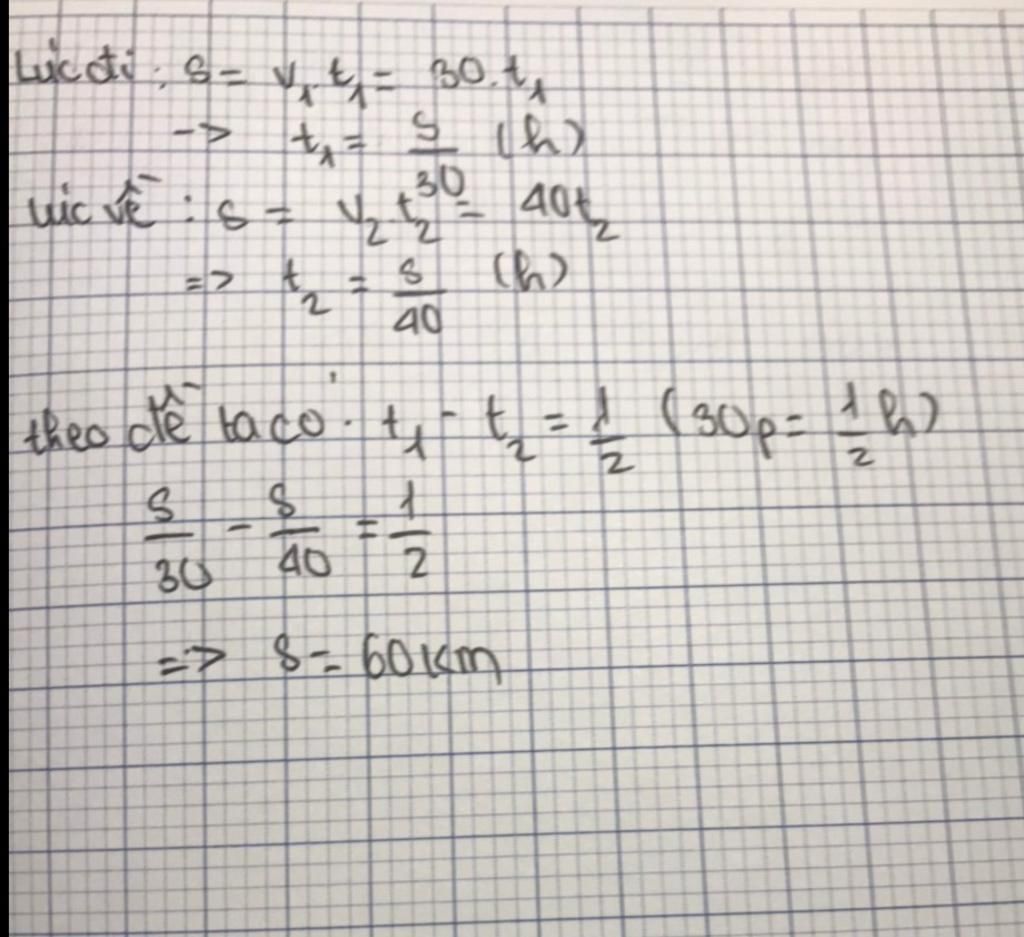 Lúc đi : s = v₁.t₁ = 30.t₁
-> t₁ = s/30 (h)
lúc về : s = v₂.t₂ = 40t₂
=> t₂ = s/40 (h)
theo đề ta có : t₁ - t₂ = 1/2 (30p = 1/2 h)
s/30 - s/40 = 1/2
=> s = 60km